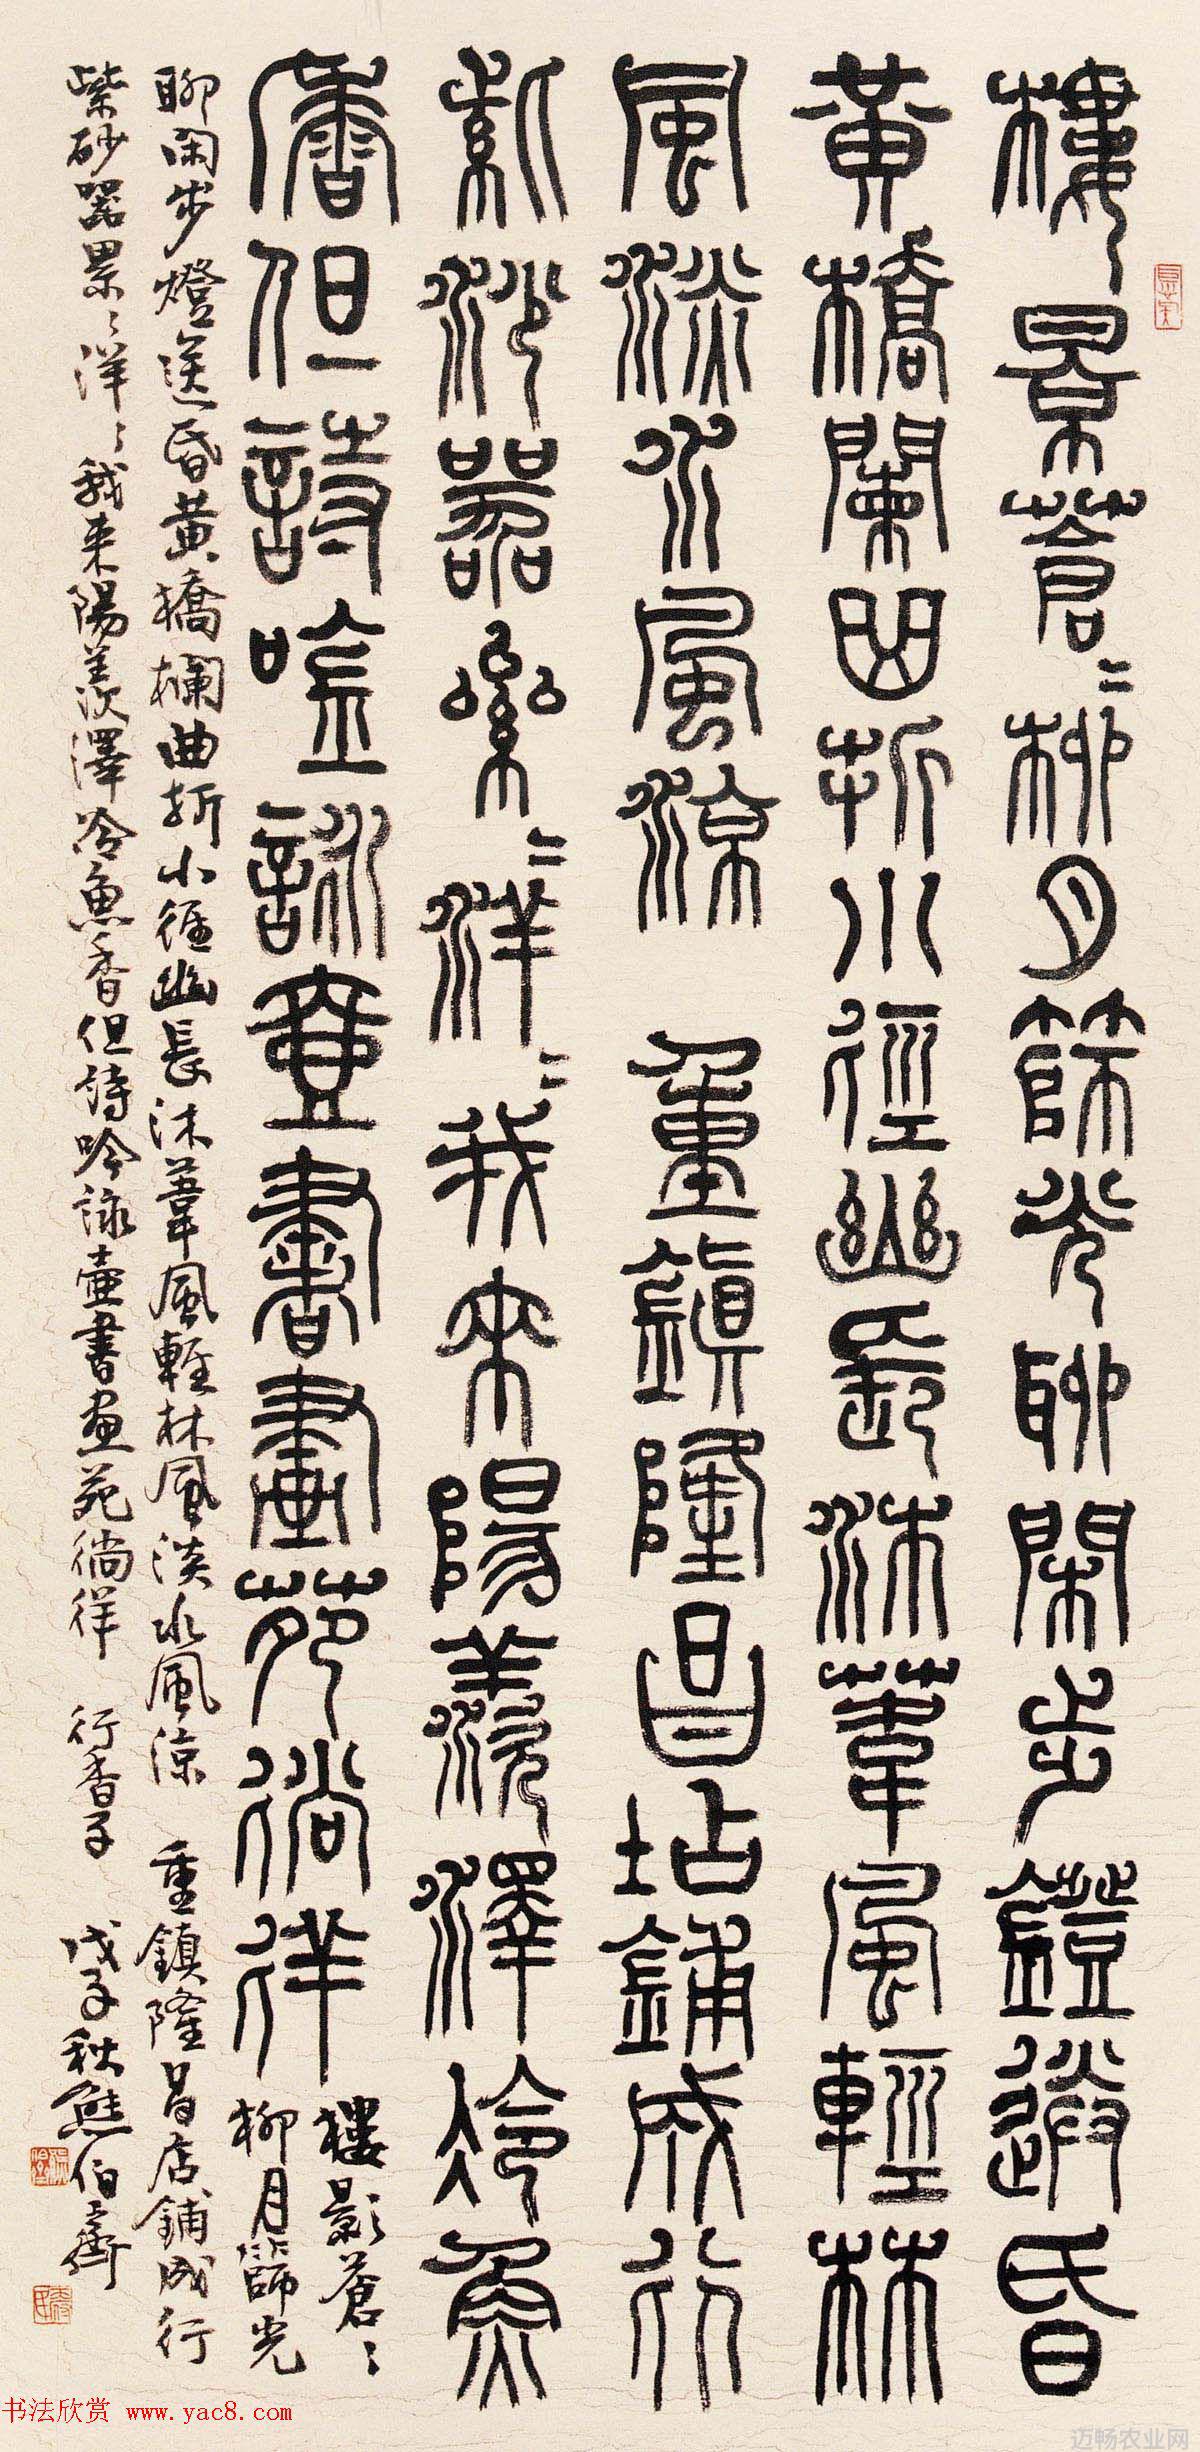 樓景蒼〻柳月篩光聊閑步鐙送昏
黃橋闌曲折小徑幽長沐葦風輕林
風淡水風涼 重鎮隆昌坫鋪成行
紫沙器纍〻洋〻我來陽羨澤冷魚
香但詩唫詠壺書畫苑徜徉
樓影蒼〻
柳月篩光
聊闲步燈送昏黄橋欄曲折小徑幽長沐葦風輕林風淡水風涼 重鎮隆昌店鋪成行
紫砂器累〻洋〻我来陽羨澤冷魚香但詩吟詠壺書画苑徜徉 行香子 戊子秋熊伯齊
书法欣赏 www.yac8.com
迈畅农业网